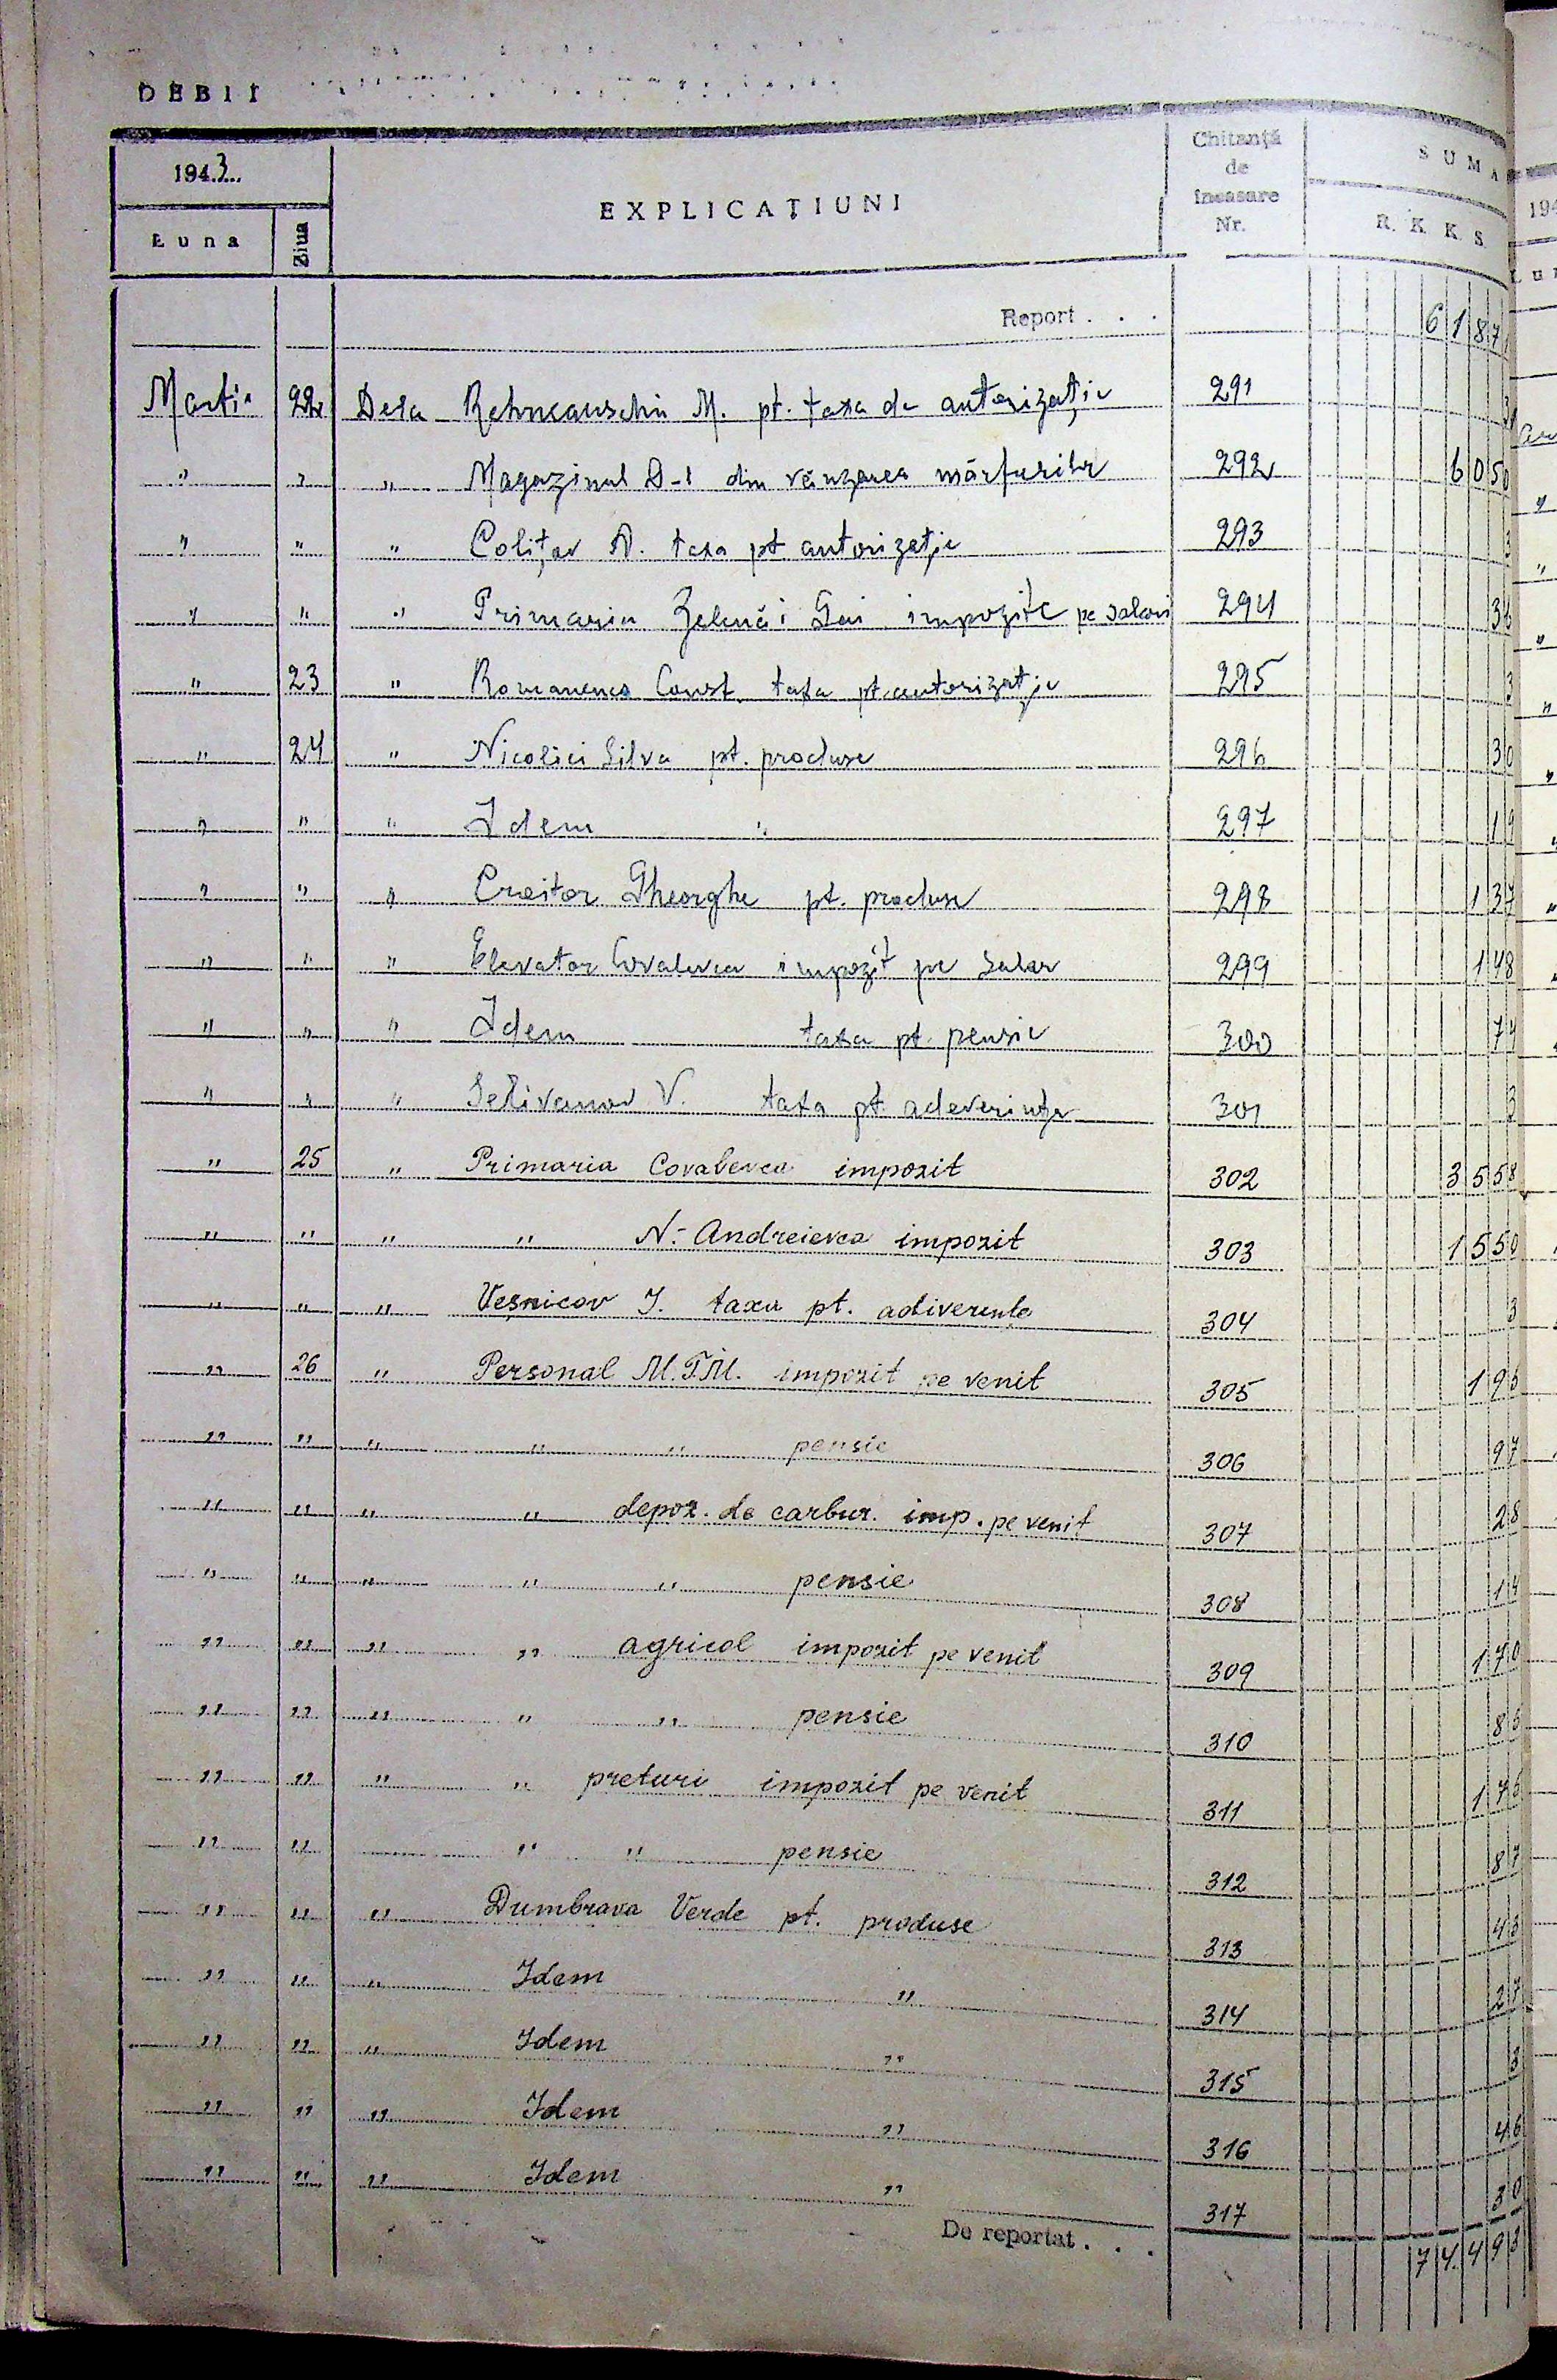 DEBIT
1943
Luna Ziua EXPLICAȚIUNI Chitanță de încasare Nr. SUMA R. K. K. S.
Report . . . 6187
Martie 22 Dela M. pt. taxa de autorizație 291 3
" " " Magazinul D-1 din vânzarea mărfurilor 292 6050
" " " Colițav N. taxa pt autorizație 293 3
" " " Primaria Zelenâi Gai impozite pe salarii 294 36
" 23 " Romanenco Const. taxa pt. autorizație 295 3
" 24 " Nicolici Silva pt. produse 296 30
" " " Idem " 297 19
" " " Croitor Gheorghe pt. produse 298 137
" " " Elevator Covalevca impozit pe salar 299 148
" " " Idem taxa pt. pensie 300 74
" " " Selivanov V. taxa pt. adeverința 301 3
" 25 " Primaria Covalevca impozit 302 3558
" " " " N.-Andreievca impozit 303 1550
" " " Veșnicov I. taxa pt. adiverența 304 3
" 26 " Personal M.T.M. impozit pe venit 305 195
" " " " " pensie 306 97
" " " " depoz. de carbur. imp. pe venit 307 28
" " " " " pensie 308 14
" " " " agricol impozit pe venit 309 170
" " " " " pensie 310 85
" " " " preturi impozit pe venit 311 175
" " " " pensie 312 87
" " " Dumbrava Verde pt. produse 313 43
" " " Idem " 314 27
" " " Idem " 315 3
" " " Idem " 316 46
" " " Idem " 317 30
De reportat . . . 74.493